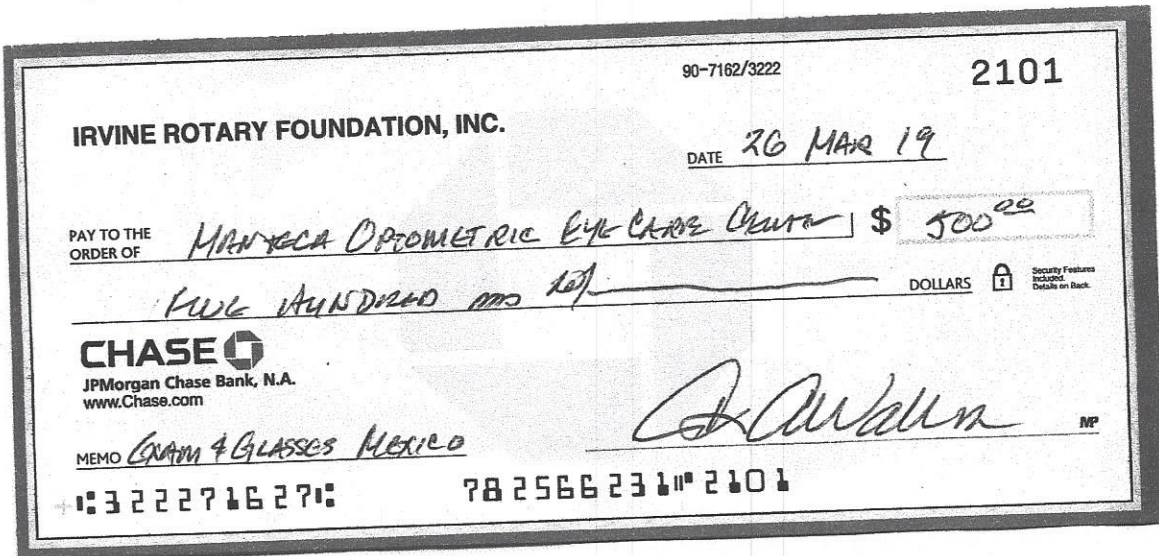 90-7162/3222
2101
IRVINE ROTARY FOUNDATION, INC.
DATE 26 MAR 19
PAY TO THE
ORDER OF MANTECA OPTOMETRIC EYE CARE CENTER $ 500 00
FIVE HUNDRED AND DOLLARS
Security Features
Included.
Details on Back.
CHASE
JPMorgan Chase Bank, N.A.
www.Chase.com
MP
MEMO EXAM & GLASSES MEXICO
⑆322271627⑆ 782566231⑈2101